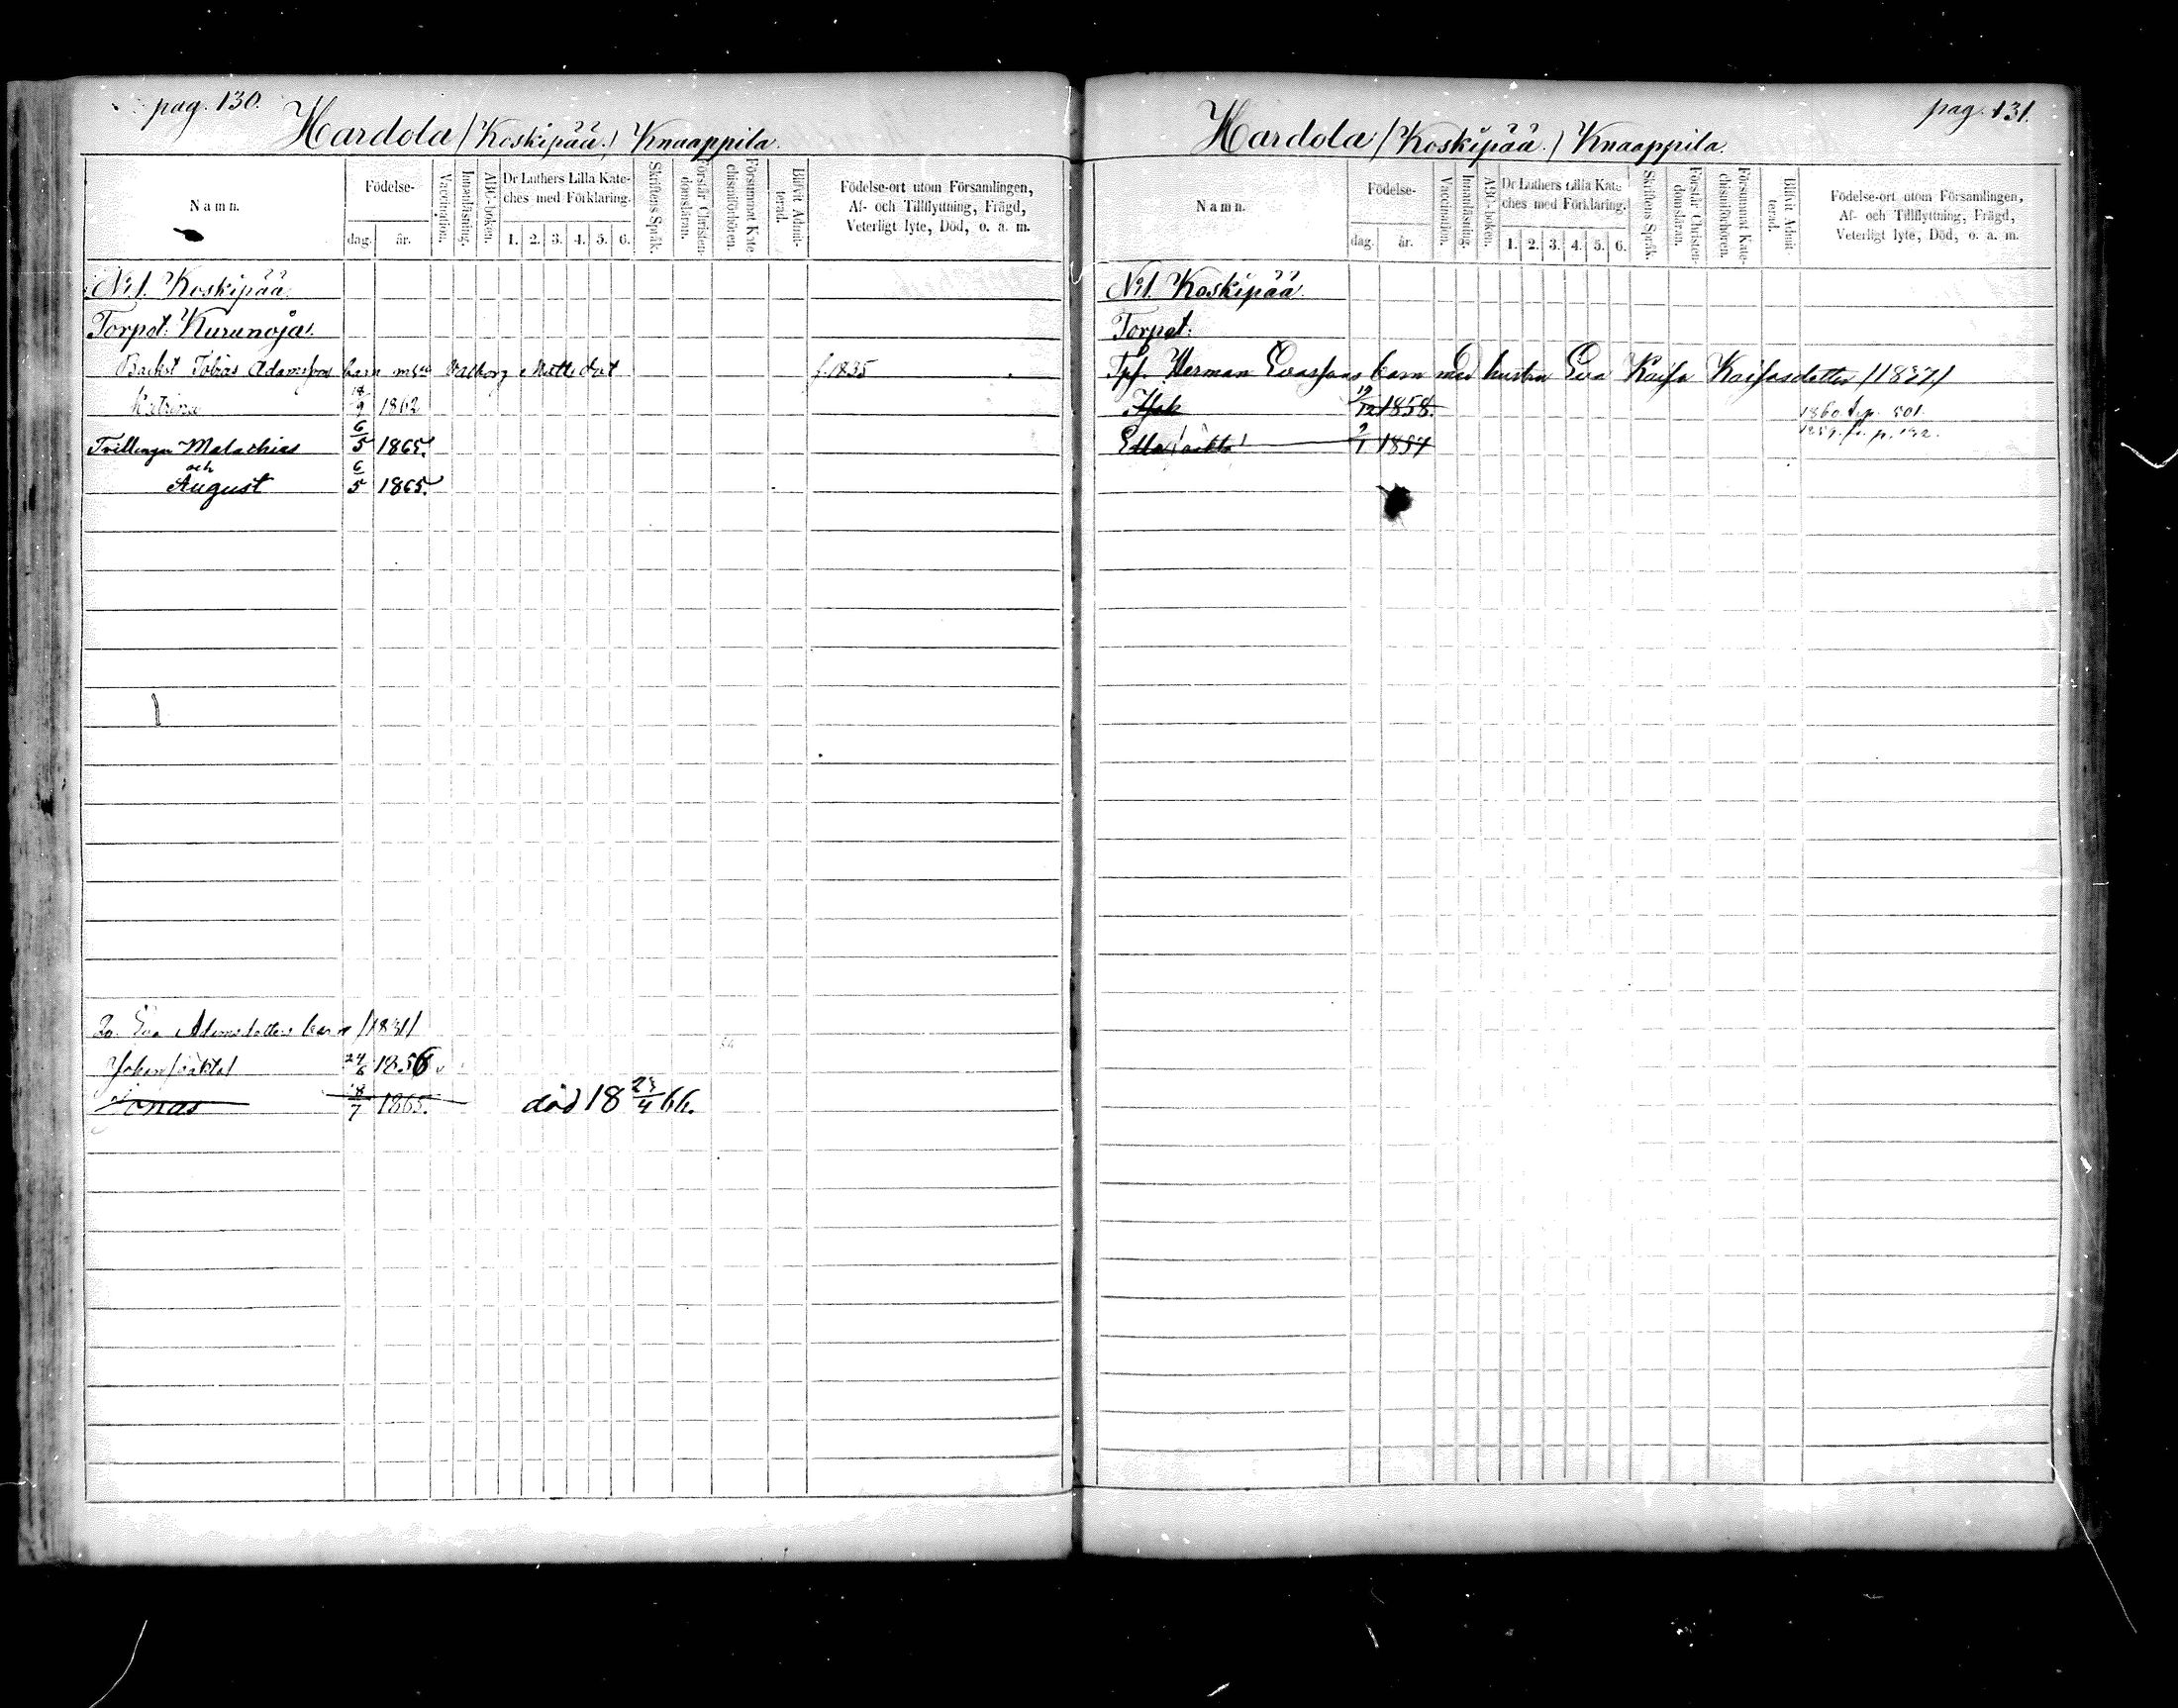 pag. 130.
Hardola /Koskipää./ Knaappila.
Namn.
Födelse-
dag.
år.
Vaccination.
Innanläsning.
ABC-boken.
Dr Luthers Lilla Kate-
ches med Förklaring.
1. 2. 3. 4. 5. 6.
Skriftens Språk.
Förstår Christen-
domsläran.
Försummat Kate
chismiförhören.
Blifvit Admit-
terad.
Födelse-ort utom Församlingen,
Af- och Tillflyttning, Frägd,
Veterligt lyte, Död, o. a. m.
No 1. Koskipää
Torpet: Kurunoja.
Backst Tobias Adamsson barn med Valborg Matts dott f. 1835
Katrina 18/9 1862
Tvillingar Malachias 6/5 1865.
och
August 6/5 1865.
Eva Adamsdotters barn /1831/
Johan /oäkta/ 24/6 1856
Jonas 18/7 1865. död 18 23/4 66.
pag. 131.
Hardola /Koskipää./ Knaappila.
Namn.
Födelse-
dag.
år.
Vaccination.
Innanläsning.
ABC-boken.
Dr Luthers Lilla Kate
ches med Förklaring.
1. 2. 3. 4. 5. 6.
Skriftens Språk.
Förstår Christen-
domsläran.
Försummat Kate-
chismiförhören.
Blifvit Admit-
terad.
Födelse-ort utom Församlingen,
Af- och Tillflyttning, Frägd,
Veterligt lyte, Död, o. a. m.
No 1. Koskipää.
Torpet:
Tpf. Herman Evassons barn med hustru Eva Kaisa Kaisasdotter /1837/
Isak 19/12 1858. 1860 p. 501.
Edla /oäkta/ 2/1 1857